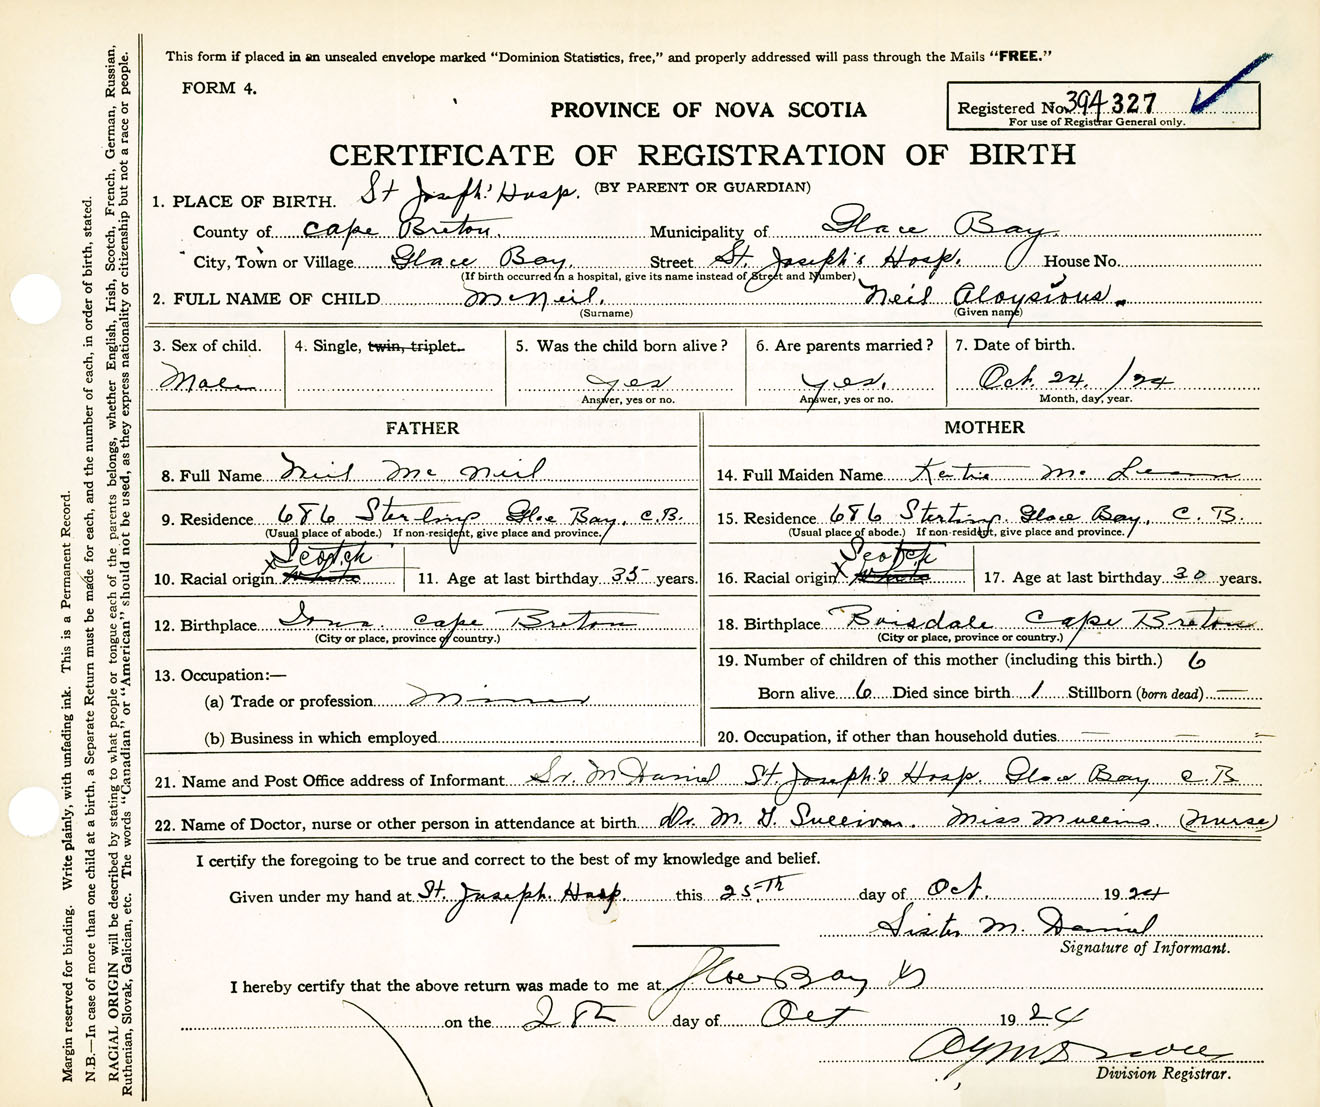 This form if placed in an unsealed envelope marked "Dominion Statistics, free," and properly addressed will pass through the Mails "FREE."
FORM 4.
PROVINCE OF NOVA SCOTIA
Registered No. 394 327
For use of Registrar General only.
CERTIFICATE OF REGISTRATION OF BIRTH
(BY PARENT OR GUARDIAN)
1. PLACE OF BIRTH. St Joseph's Hosp.
County of Cape Breton. Municipality of Glace Bay.
City, Town or Village Glace Bay. Street St. Joseph's Hosp. House No.
(If birth occurred in a hospital, give its name instead of Street and Number)
2. FULL NAME OF CHILD McNeil. Neil Aloysious.
(Surname) (Given name)
3. Sex of child. 4. Single, twin, triplet. 5. Was the child born alive? 6. Are parents married? 7. Date of birth.
Male yes yes. Oct. 24. /24
Answer, yes or no. Answer, yes or no. Month, day, year.
FATHER MOTHER
8. Full Name Neil McNeil 14. Full Maiden Name Katie McLean
9. Residence 686 Sterling Glce Bay, C.B. 15. Residence 686 Sterling. Glace Bay, C. B.
(Usual place of abode.) If non-resident, give place and province. (Usual place of abode.) If non-resident, give place and province.
x Scotch x Scotch
10. Racial origin White 11. Age at last birthday 35 years. 16. Racial origin White 17. Age at last birthday 30 years.
12. Birthplace Iona. Cape Breton 18. Birthplace Boisdale Cape Breton
(City or place, province or country.) (City or place, province or country.)
13. Occupation:— 19. Number of children of this mother (including this birth.) 6
(a) Trade or profession Miner Born alive 6 Died since birth 1 Stillborn (born dead) —
(b) Business in which employed 20. Occupation, if other than household duties — — -
21. Name and Post Office address of Informant Sr. M Daniel St. Joseph's Hosp. Glace Bay C B
22. Name of Doctor, nurse or other person in attendance at birth Dr. M. G. Sullivan. Miss Mullins. (Nurse)
I certify the foregoing to be true and correct to the best of my knowledge and belief.
Given under my hand at St. Joseph. Hosp. this 25.Th day of Oct. 1924
Sister M. Daniel
Signature of Informant.
I hereby certify that the above return was made to me at Glce Bay
on the 28th day of Oct 1924
Division Registrar.
Margin reserved for binding. Write plainly, with unfading ink. This is a Permanent Record.
N.B.—In case of more than one child at a birth, a Separate Return must be made for each, and the number of each, in order of birth, stated.
RACIAL ORIGIN will be described by stating to what people or tongue each of the parents belongs, whether English, Irish, Scotch, French, German, Russian,
Ruthenian, Slovak, Galician, etc. The words "Canadian" or "American" should not be used, as they express nationality or citizenship but not a race or people.